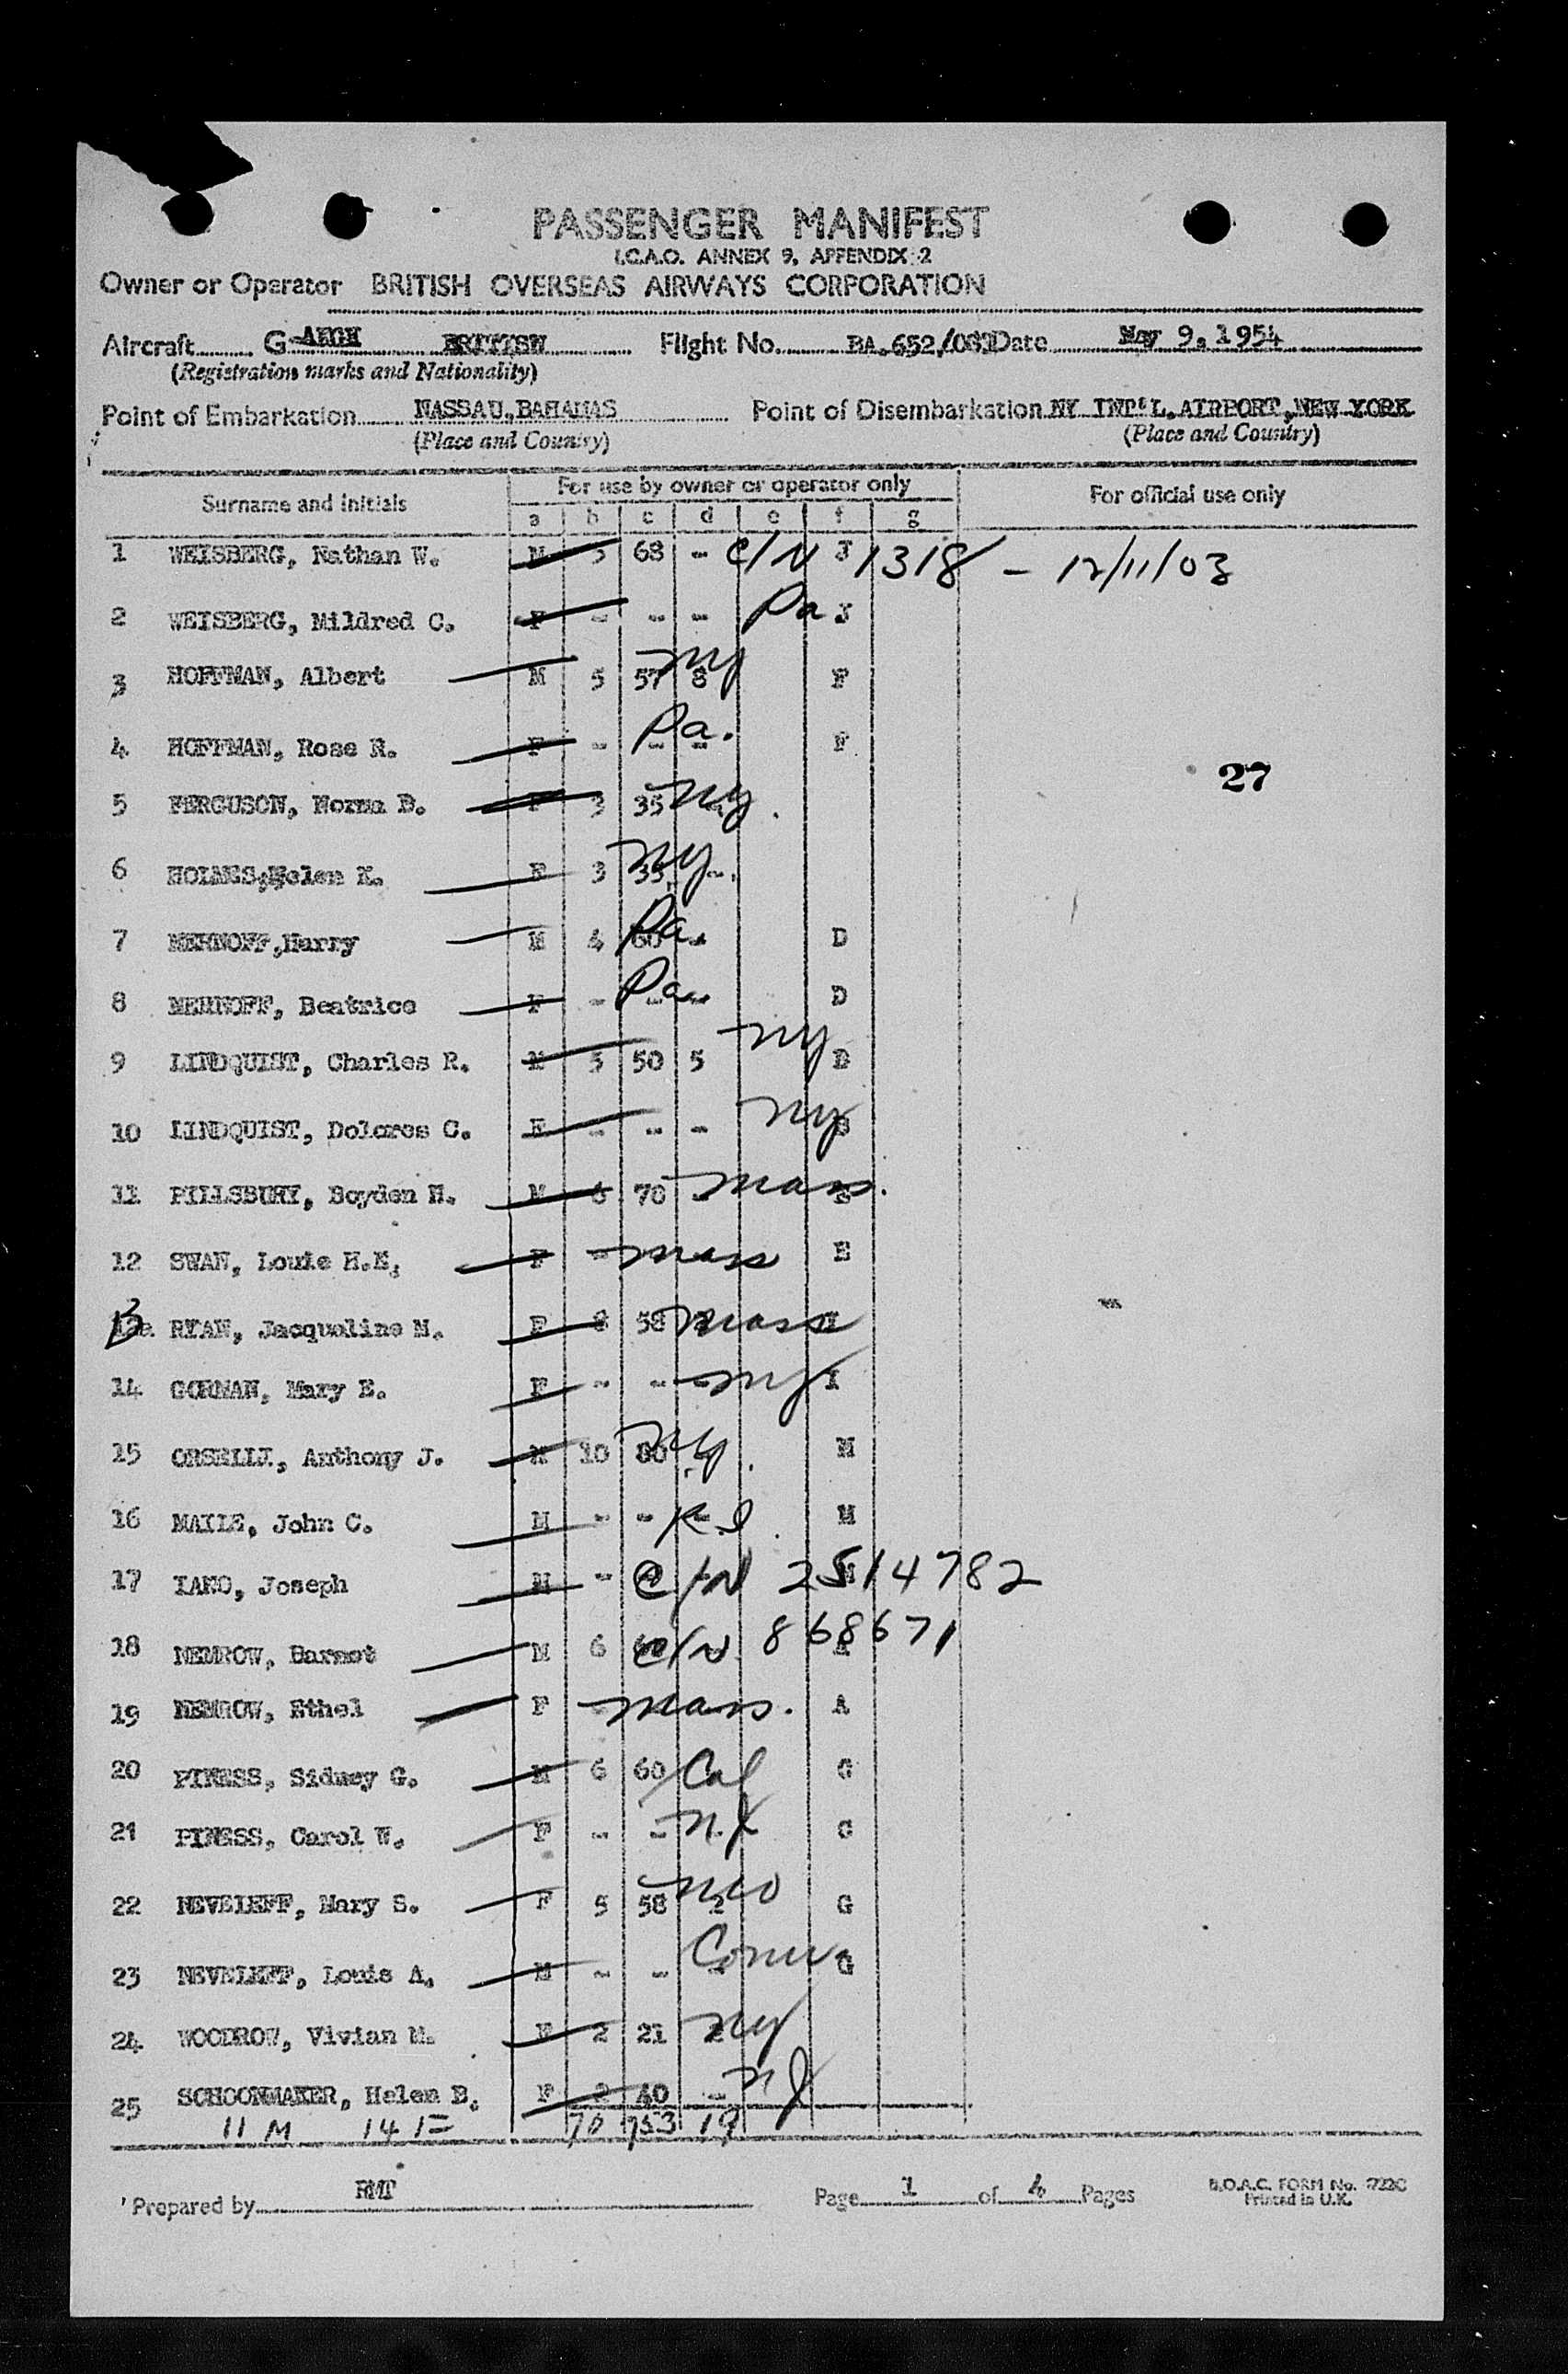 PASSENGER MANIFEST
I.C.A.O. ANNEX 9, APPENDIX 2
Owner or Operator BRITISH OVERSEAS AIRWAYS CORPORATION
Aircraft G- BRITISH Flight No. BA.652/ Date May 9, 1954
(Registration marks and Nationality)
Point of Embarkation NASSAU, BAHAMAS Point of Disembarkation NY INT'L. AIRPORT, NEW YORK
(Place and Country) (Place and Country)
Surname and initials For use by owner or operator only For official use only
a b c d e f g
1 WEISBERG, Nathan W. M 5 68 - C/N J 1318 - 12/11/03
2 WEISBERG, Mildred C. F - - - Pa. J
3 HOFFMAN, Albert M 5 57 8 ny F
4 HOFFMAN, Rose R. F - - - Pa. F
27
5 FERGUSON, Norma B. F 3 35 - ny.
6 HOLMES, Helen K. F 3 35 - ny.
7 MEHNOFF, Harry M 4 60 - Pa. D
8 MEHNOFF, Beatrice F - - - Pa. D
9 LINDQUIST, Charles R. M 5 50 5 ny B
10 LINDQUIST, Dolores C. F - - - ny B
11 PILLSBURY, Boyden N. M 6 70 - mass. E
12 SWAN, Louie H.E. F - mass E
13 RYAN, Jacqueline M. F 8 58 mass I
14 GORMAN, Mary E. F - - - ny I
15 Anthony J. M 10 80 ny. M
16 MAILE, John C. M - - - R.I. M
17 Joseph M - - - C/N 2514782 M
18 NEMROW, Barnet M 6 60 C/N 868671 A
19 NEMROW, Ethel F - mass. A
20 PINESS, Sidney G. M 6 60 Cal G
21 PINESS, Carol W. F - - - n.J
22 NEVELEFF, Mary S. F 5 58 2 mo G
23 NEVELEFF, Louis A. M - - - Conn. G
24 WOODROW, Vivian M. F 2 21 2 ny
25 SCHOONMAKER, Helen B. F 2 40 - nJ
11 M 14 F 70 753 19
Prepared by RMT Page 1 of 4 Pages B.O.A.C. FORM No. 722C
Printed in U.K.